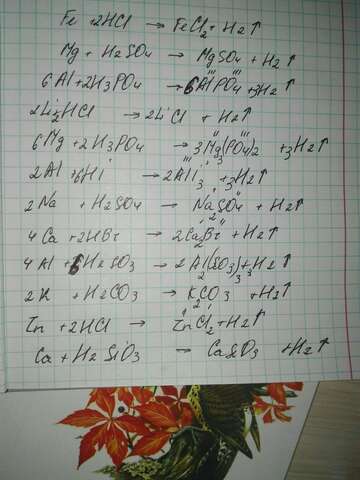 Fe + 2HCl → FeCl2 + H2↑
Mg + H2SO4 → MgSO4 + H2↑
6Al + 2H3PO4 → 6AlPO4 + 3H2↑
2Li + 2HCl → 2LiCl + H2↑
6Mg + 2H3PO4 → 3Mg3(PO4)2 + 3H2↑
2Al + 6HI → 2AlI3 + 3H2↑
2Na + H2SO4 → Na2SO4 + H2↑
4Ca + 2HBr → 2Ca2Br + H2↑
4Al + 6H2SO3 → 2Al2(SO3)3 + 3H2↑
2K + H2CO3 → K2CO3 + H2↑
Zn + 2HCl → ZnCl2 + H2↑
Ca + H2SiO3 → CaSiO3 + H2↑